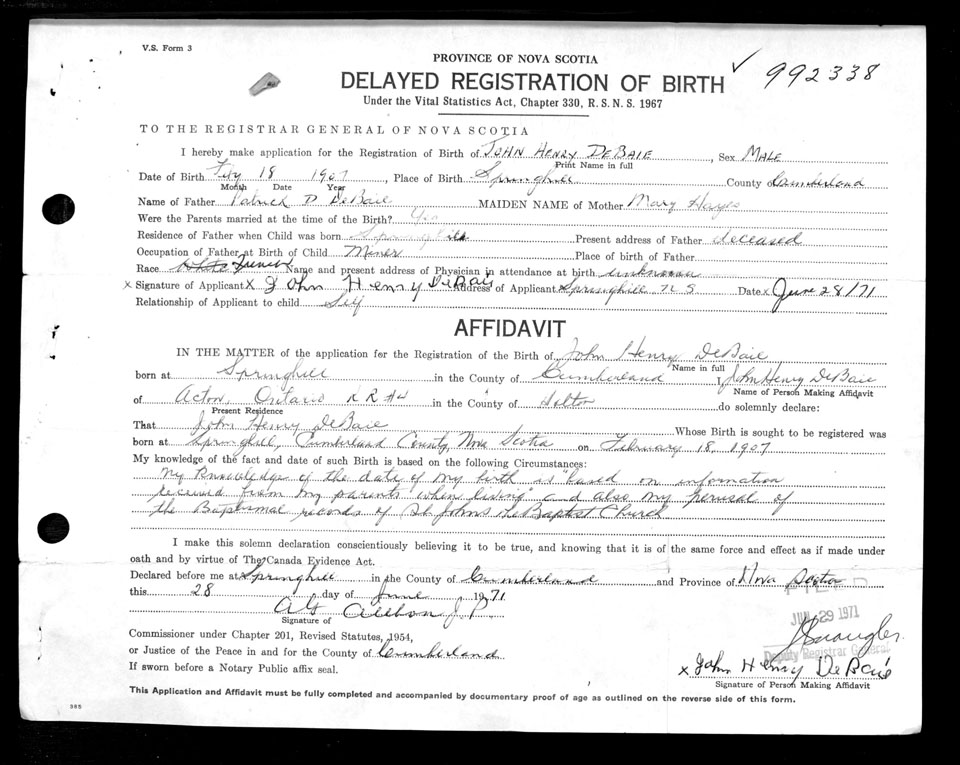 V.S. Form 3
PROVINCE OF NOVA SCOTIA
✓ 992338
DELAYED REGISTRATION OF BIRTH
Under the Vital Statistics Act, Chapter 330, R.S.N.S. 1967
TO THE REGISTRAR GENERAL OF NOVA SCOTIA
I hereby make application for the Registration of Birth of JOHN HENRY DEBAIE, Sex MALE
Print Name in full
Date of Birth Feby 18 1907, Place of Birth Springhill County of Cumberland
Month Date Year
Name of Father Patrick D DeBaie MAIDEN NAME of Mother Mary Hayes
Were the Parents married at the time of the Birth? Yes
Residence of Father when Child was born Springhill Present address of Father deceased
Occupation of Father at Birth of Child Miner Place of birth of Father
Race White French Name and present address of Physician in attendance at birth unknown
x Signature of Applicant x John Henry DeBaie Address of Applicant Springhill N S Date x June 28/71
Relationship of Applicant to child Self
AFFIDAVIT
IN THE MATTER of the application for the Registration of the Birth of John Henry DeBaie
Name in full
born at Springhill in the County of Cumberland I John Henry DeBaie
Name of Person Making Affidavit
of Acton, Ontario RR#4 in the County of Halton do solemnly declare:
Present Residence
That John Henry DeBaie Whose Birth is sought to be registered was
born at Springhill, Cumberland County, Nova Scotia on February 18, 1907
My knowledge of the fact and date of such Birth is based on the following Circumstances:
My Knowledge of the date of my birth is "based on information
received from my parents "when living" and also my perusal of
the Baptismal records of St Johns Baptist Church
I make this solemn declaration conscientiously believing it to be true, and knowing that it is of the same force and effect as if made under
oath and by virtue of The Canada Evidence Act.
Declared before me at Springhill in the County of Cumberland and Province of Nova Scotia
this 28 day of June 1971
FILED
JUN 29 1971
A G Allbon J.P.
Signature of
Deputy Registrar General
Commissioner under Chapter 201, Revised Statutes, 1954,
or Justice of the Peace in and for the County of Cumberland
x John Henry DeBaie
If sworn before a Notary Public affix seal.
Signature of Person Making Affidavit
This Application and Affidavit must be fully completed and accompanied by documentary proof of age as outlined on the reverse side of this form.
385